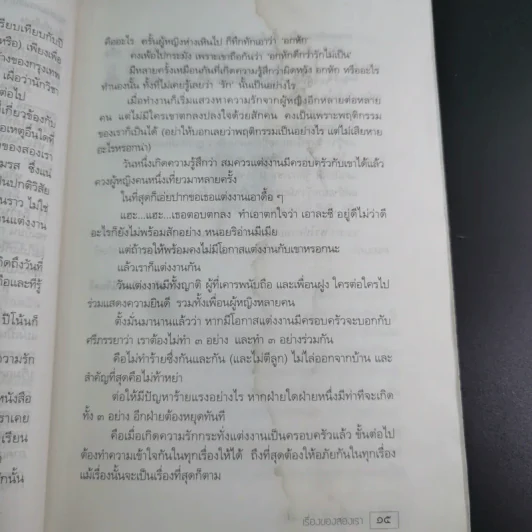 รียบเทียบกับปี
หรือ) เพียงเพื่อ
างของกรุงเทพ
เผื่อว่านักวิชา
ต่อไป
ที่เกี่ยวข้องกับ
อเหตุอื่นใดที่
ของสองเรา
มรส ซึ่งแน่
นปกติวิสัย
นราว ไม่ใช่
นแต่งงาน
กิดถึงวันที่
ถือและที่รู้
ปีโน้นก็
ความรัก
หนังสือ
ราเคย
เรียน
ักนั้น
คืออะไร ครั้นผู้หญิงห่างเหินไป ก็ทึกทักเอาว่า 'อกหัก'
คงเพ้อไปกระมัง เพราะเขาถือกันว่า 'อกหักดีกว่ารักไม่เป็น'
มีหลายครั้งเหมือนกันที่เกิดความรู้สึกว่าผิดหวัง อกหัก หรืออะไร
ทำนองนั้น ทั้งที่ไม่เคยรู้เลยว่า 'รัก' นั้นเป็นอย่างไร
เมื่อทำงานก็เริ่มแสวงหาความรักจากผู้หญิงอีกหลายต่อหลาย
คน แต่ไม่มีใครเขาตกลงปลงใจด้วยสักคน คงเป็นเพราะพฤติกรรม
ของเราก็เป็นได้ (อย่าให้บอกเลยว่าพฤติกรรมเป็นอย่างไร แต่ไม่เสียหาย
อะไรหรอกน่า)
วันหนึ่งเกิดความรู้สึกว่า สมควรแต่งงานมีครอบครัวกับเขาได้แล้ว
ควงผู้หญิงคนหนึ่งเที่ยวมาหลายครั้ง
ในที่สุดก็เอ่ยปากขอเธอแต่งงานเอาดื้อ ๆ
แฮะ...แฮะ...เธอตอบตกลง ทำเอาตกใจว่า เอาละซี อยู่ดีไม่ว่าดี
อะไรก็ยังไม่พร้อมสักอย่าง หนอยริอ่านมีเมีย
แต่ถ้ารอให้พร้อมคงไม่มีโอกาสแต่งงานกับเขาหรอกนะ
แล้วเราก็แต่งงานกัน
วันแต่งงานมีทั้งญาติ ผู้ที่เคารพนับถือ และเพื่อนฝูง ใครต่อใครไป
ร่วมแสดงความยินดี รวมทั้งเพื่อนผู้หญิงหลายคน
ตั้งมั่นมานานแล้วว่า หากมีโอกาสแต่งงานมีครอบครัวจะบอกกับ
ศรีภรรยาว่า เราต้องไม่ทำ ๓ อย่าง และทำ ๓ อย่างร่วมกัน
คือไม่ทำร้ายซึ่งกันและกัน (และไม่ตีลูก) ไม่ไล่ออกจากบ้าน และ
สำคัญที่สุดคือไม่ท้าหย่า
ต่อให้มีปัญหาร้ายแรงอย่างไร หากฝ่ายใดฝ่ายหนึ่งมีท่าทีจะเกิด
ทั้ง ๓ อย่าง อีกฝ่ายต้องหยุดทันที
คือเมื่อเกิดความรักกระทั่งแต่งงานเป็นครอบครัวแล้ว ขั้นต่อไป
ต้องทำความเข้าใจกันในทุกเรื่องให้ได้ ถึงที่สุดต้องให้อภัยกันในทุกเรื่อง
แม้เรื่องนั้นจะเป็นเรื่องที่สุดก็ตาม
เรื่องของสองเรา ๑๕